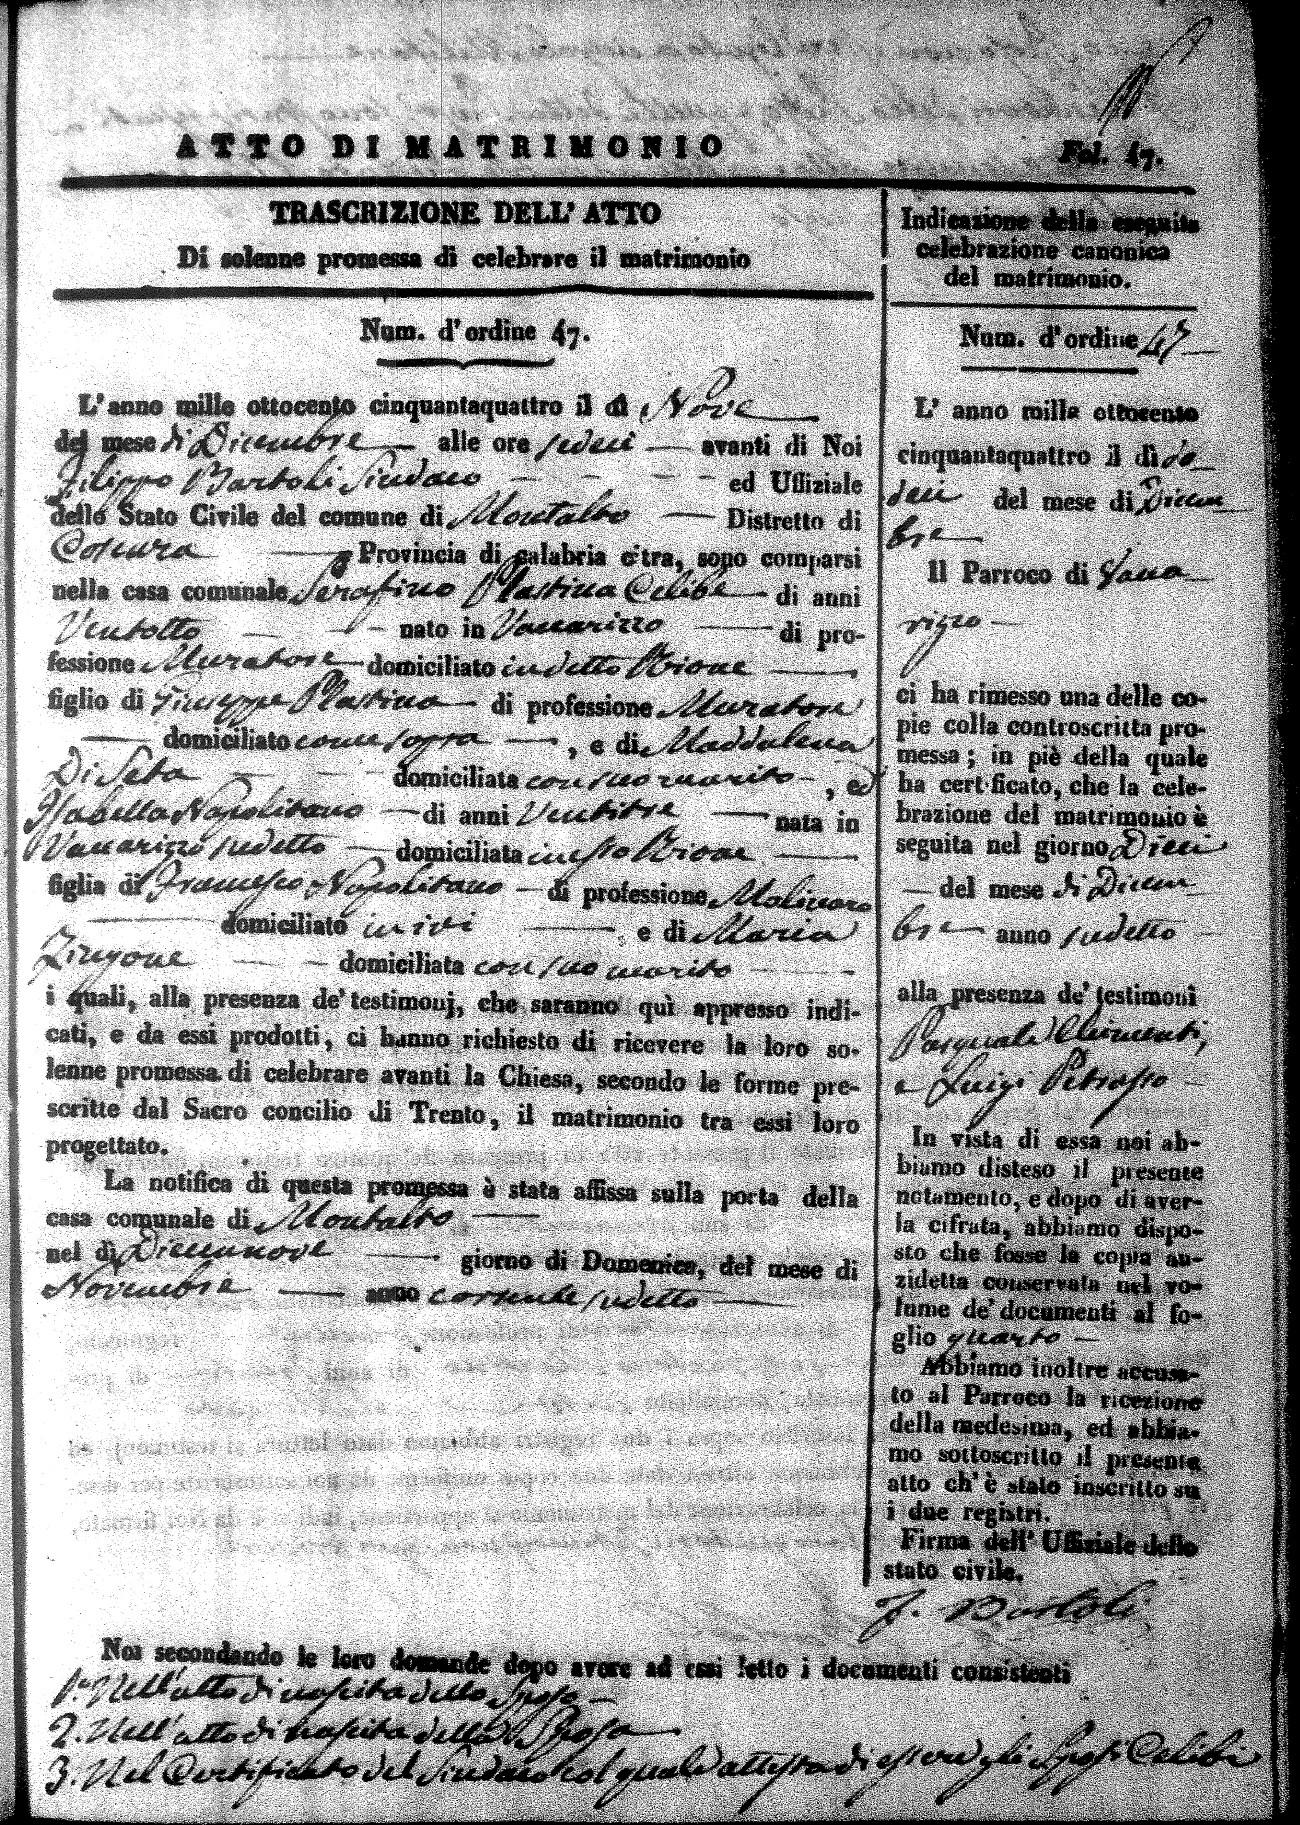 ATTO DI MATRIMONIO
Fol. 47.
TRASCRIZIONE DELL' ATTO
Di solenne promessa di celebrare il matrimonio
Num. d'ordine 47.
L'anno mille ottocento cinquantaquattro il dì Nove
del mese di Dicembre alle ore sedeci avanti di Noi
Filippo Bartoli Sindaco ed Uffiziale
dello Stato Civile del comune di Montalto Distretto di
Cosenza Provincia di calabria citra, sono comparsi
nella casa comunale Serafino Plastina Celibe di anni
Ventotto nato in Vaccarizzo di pro-
fessione Muratore domiciliato in detto Rione
figlio di Giuseppe Plastina di professione Muratore
domiciliato come sopra, e di Maddalena
Di Seta domiciliata con suo marito, ed
Isabella Napolitano di anni Ventitre nata in
Vaccarizzo sudetto domiciliata in esso Rione
figlia di Francesco Napolitano di professione Molinaro
domiciliato in ivi e di Maria
Zingone domiciliata con suo marito
i quali, alla presenza de' testimonj, che saranno quì appresso indi-
cati, e da essi prodotti, ci hanno richiesto di ricevere la loro so-
lenne promessa di celebrare avanti la Chiesa, secondo le forme pre-
scritte dal Sacro concilio di Trento, il matrimonio tra essi loro
progettato.
La notifica di questa promessa è stata affissa sulla porta della
casa comunale di Montalto
nel dì Diecinnove giorno di Domenica, del mese di
Novembre anno corrente sudetto
Indicazione della eseguita
celebrazione canonica
del matrimonio.
Num. d'ordine 47
L' anno mille ottocento
cinquantaquattro il dì do
deci del mese di Dicem
bre
Il Parroco di Vacca
rizzo
ci ha rimesso una delle co-
pie colla controscritta pro-
messa; in piè della quale
ha certificato, che la cele-
brazione del matrimonio è
seguita nel giorno Dieci
del mese di Dicem
bre anno sudetto
alla presenza de' testimoni
Pasquale Chimenti,
e Luigi Petrasso
In vista di essa noi ab-
biamo disteso il presente
notamento, e dopo di aver-
la cifrata, abbiamo dispo-
sto che fosse la copia au-
zidetta conservata nel vo-
lume de' documenti al fo-
glio quarto
Abbiamo inoltre accusa-
to al Parroco la ricezione
della medesima, ed abbia-
mo sottoscritto il presente
atto ch' è stato inscritto su
i due registri.
Firma dell' Uffiziale dello
stato civile.
F. Bartoli
Noi secondando le loro domande dopo avere ad essi letto i documenti consistenti
1. Nell'atto di nascita dello Sposo
2. Nell'atto di nascita della Sposa
3. Nel Certificato del Sindaco col quale attesta di essere gli Sposi Celibi